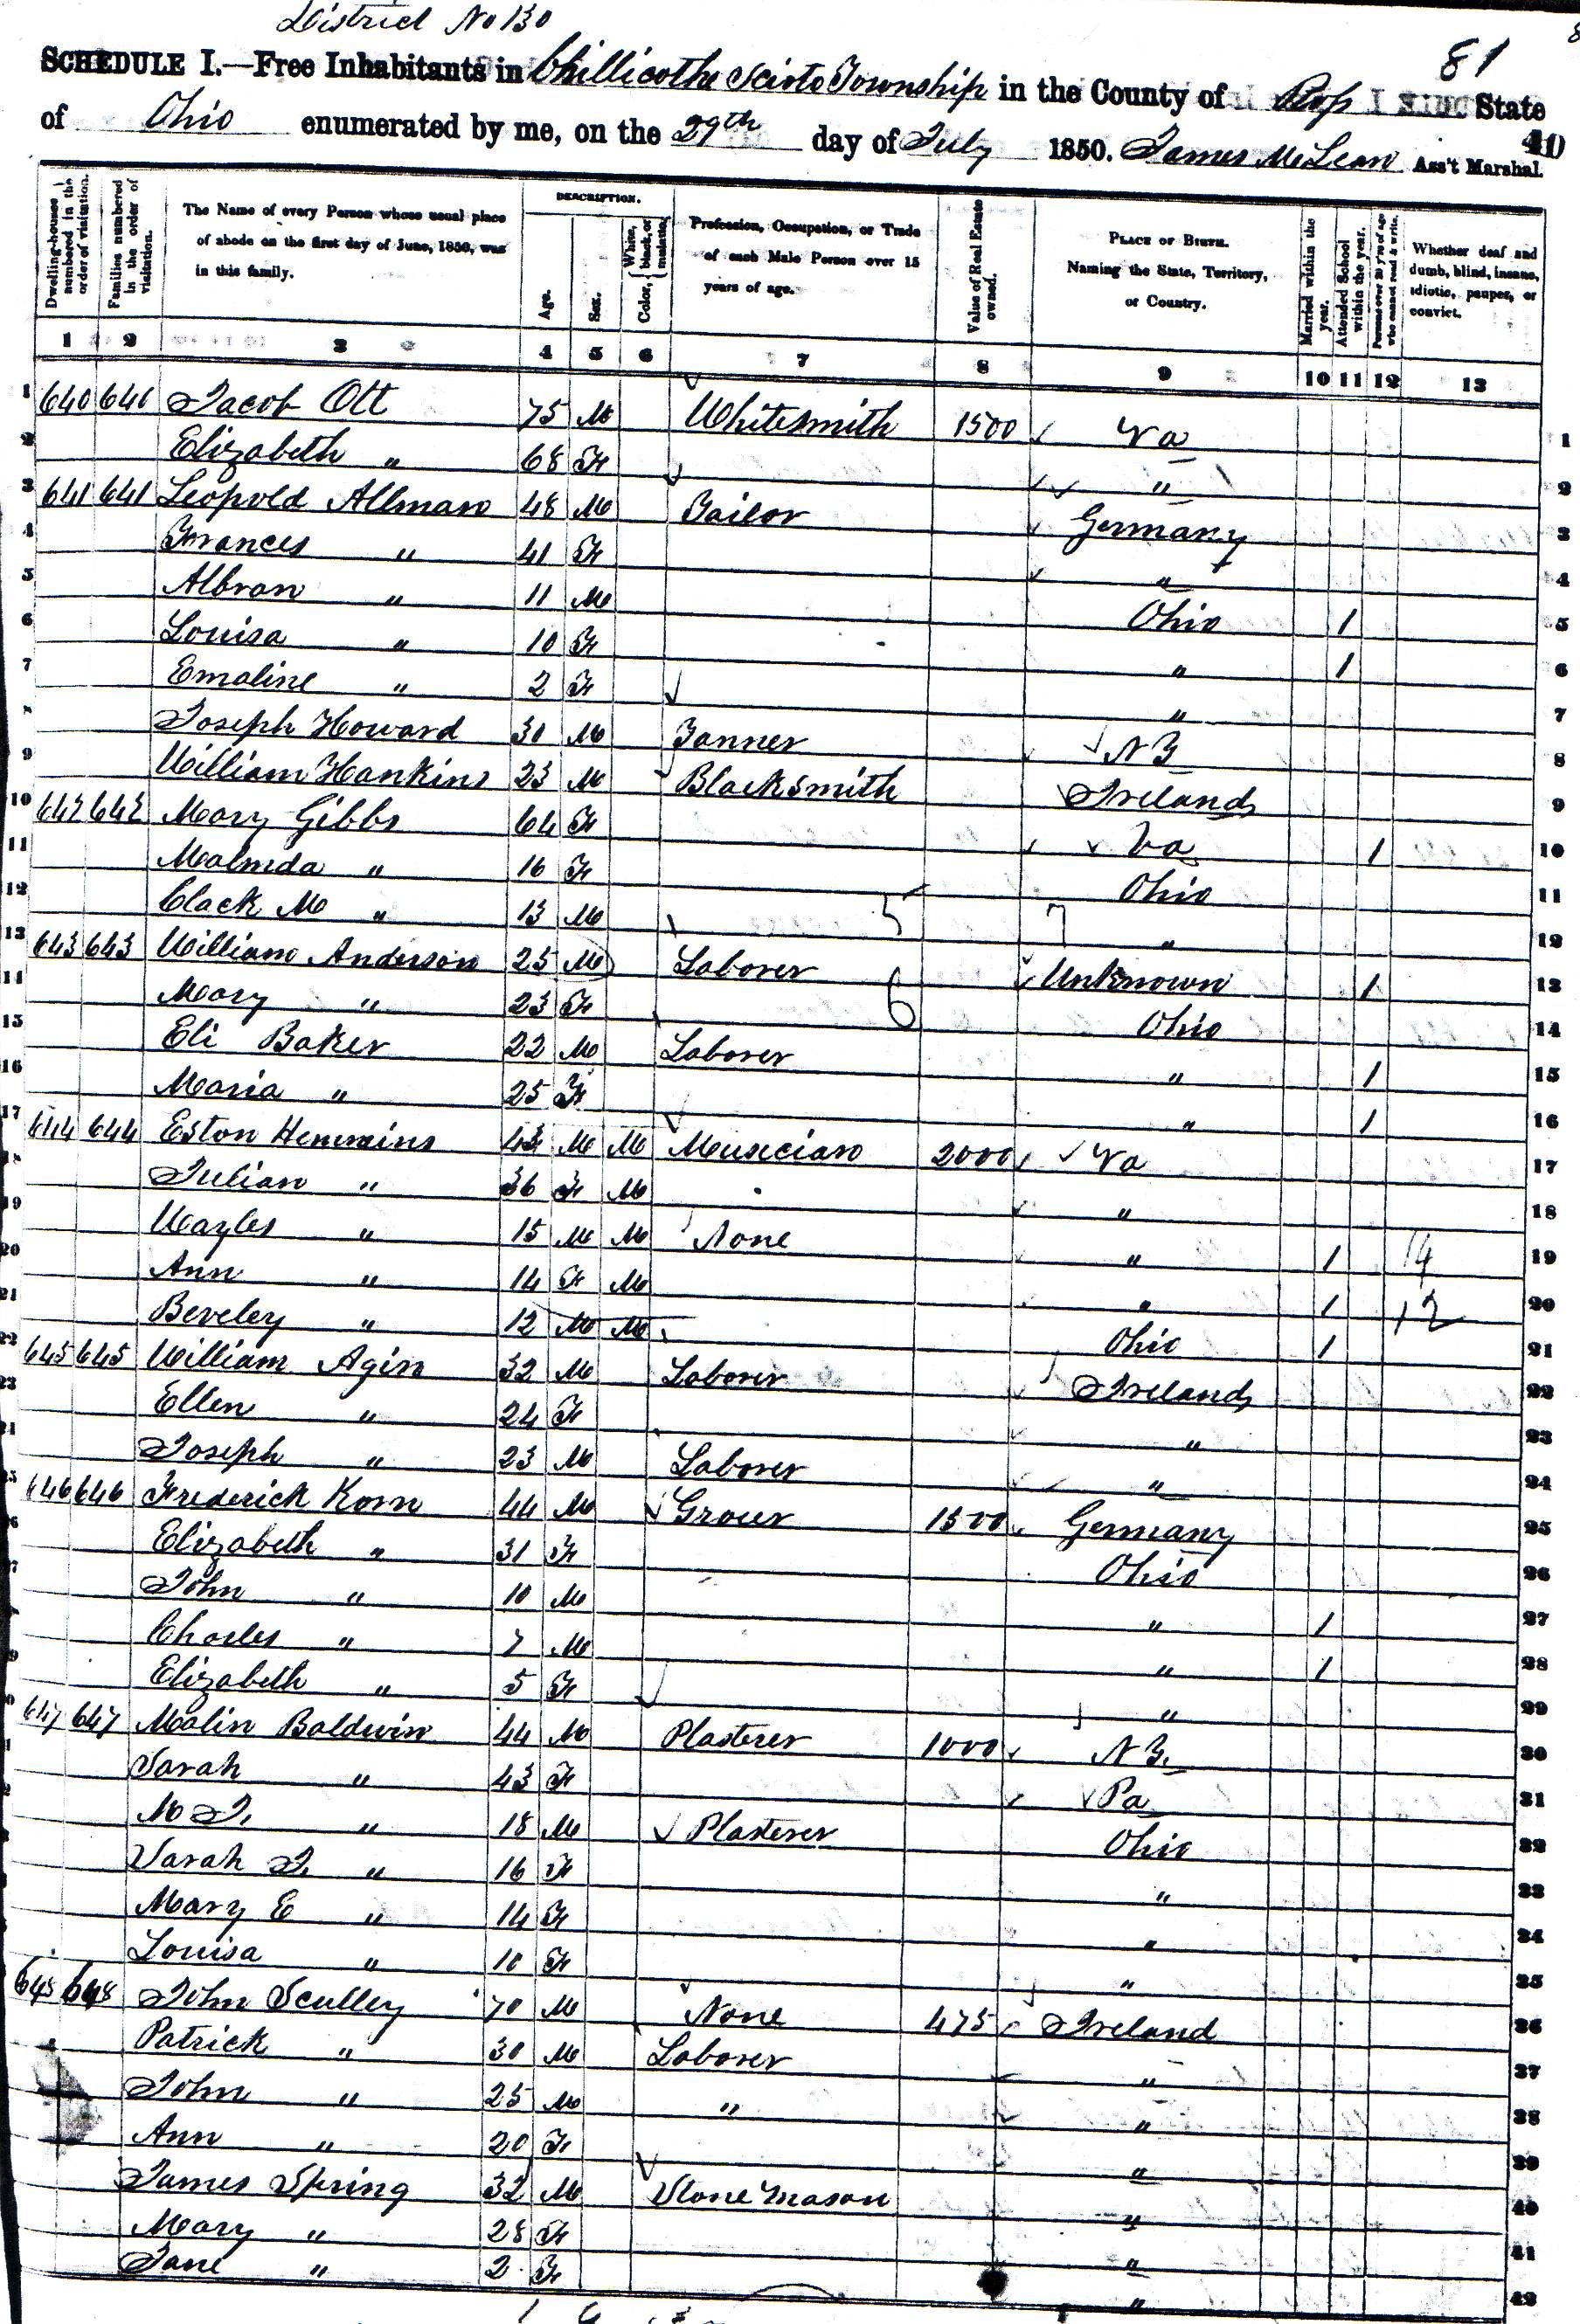 District No 130
81
SCHEDULE I.—Free Inhabitants in Chillicothe Scioto Township in the County of Ross State
of Ohio enumerated by me, on the 29th day of July 1850. James McLean Ass't Marshal.
Dwelling-houses numbered in the order of visitation.
Families numbered in the order of visitation.
The Name of every Person whose usual place of abode on the first day of June, 1850, was in this family.
DESCRIPTION.
Age.
Sex.
Color, { White, black, or mulatto.
Profession, Occupation, or Trade of each Male Person over 15 years of age.
Value of Real Estate owned.
PLACE OF BIRTH. Naming the State, Territory, or Country.
Married within the year.
Attended School within the year.
Persons over 20 y'rs of age who cannot read & write.
Whether deaf and dumb, blind, insane, idiotic, pauper, or convict.
1 2 3 4 5 6 7 8 9 10 11 12 13
1 640 640 Jacob Ott 75 M Whitesmith 1500 Va 1
2 Elizabeth " 68 F " 2
3 641 641 Leopold Allman 48 M Tailor Germany 3
4 Frances " 41 F " 4
5 Albran " 11 M Ohio 1 5
6 Louisa " 10 F " 1 6
7 Emaline " 2 F " 7
8 Joseph Howard 30 M Tanner N J 8
9 William Hankins 23 M Blacksmith Ireland 9
10 642 642 Mary Gibbs 64 F Va 1 10
11 Malinda " 16 F Ohio 11
12 Clack M " 13 M 5 7 " 12
13 643 643 William Anderson 25 M Laborer Unknown 1 13
14 Mary " 23 F 6 Ohio 14
15 Eli Baker 22 M Laborer " 1 15
16 Maria " 25 F " 1 16
17 644 644 Eston Hemmins 43 M M Musician 2000 Va 17
18 Julian " 36 F M " 18
19 Wayles " 15 M M None " 1 14 19
20 Ann " 14 F M " 1 12 20
21 Beveley " 12 M M Ohio 1 21
22 645 645 William Agin 32 M Laborer Ireland 22
23 Ellen " 24 F " 23
24 Joseph " 23 M Laborer " 24
25 646 646 Frederick Korn 44 M Grocer 1500 Germany 25
26 Elizabeth " 31 F Ohio 26
27 John " 10 M " 1 27
28 Charles " 7 M " 1 28
29 Elizabeth " 5 F " 29
647 647 Malin Baldwin 44 M Plasterer 1000 N J. 30
Sarah " 43 F Pa 31
M J. " 18 M Plasterer Ohio 32
Sarah J. " 16 F " 33
Mary E " 14 F " 34
Louisa " 10 F " 35
648 648 John Sculley 70 M None 475 Ireland 36
Patrick " 30 M Laborer " 37
John " 25 M " " 38
Ann " 20 F " 39
James Spring 32 M Stone Mason " 40
Mary " 28 F " 41
Jane " 2 F " 42